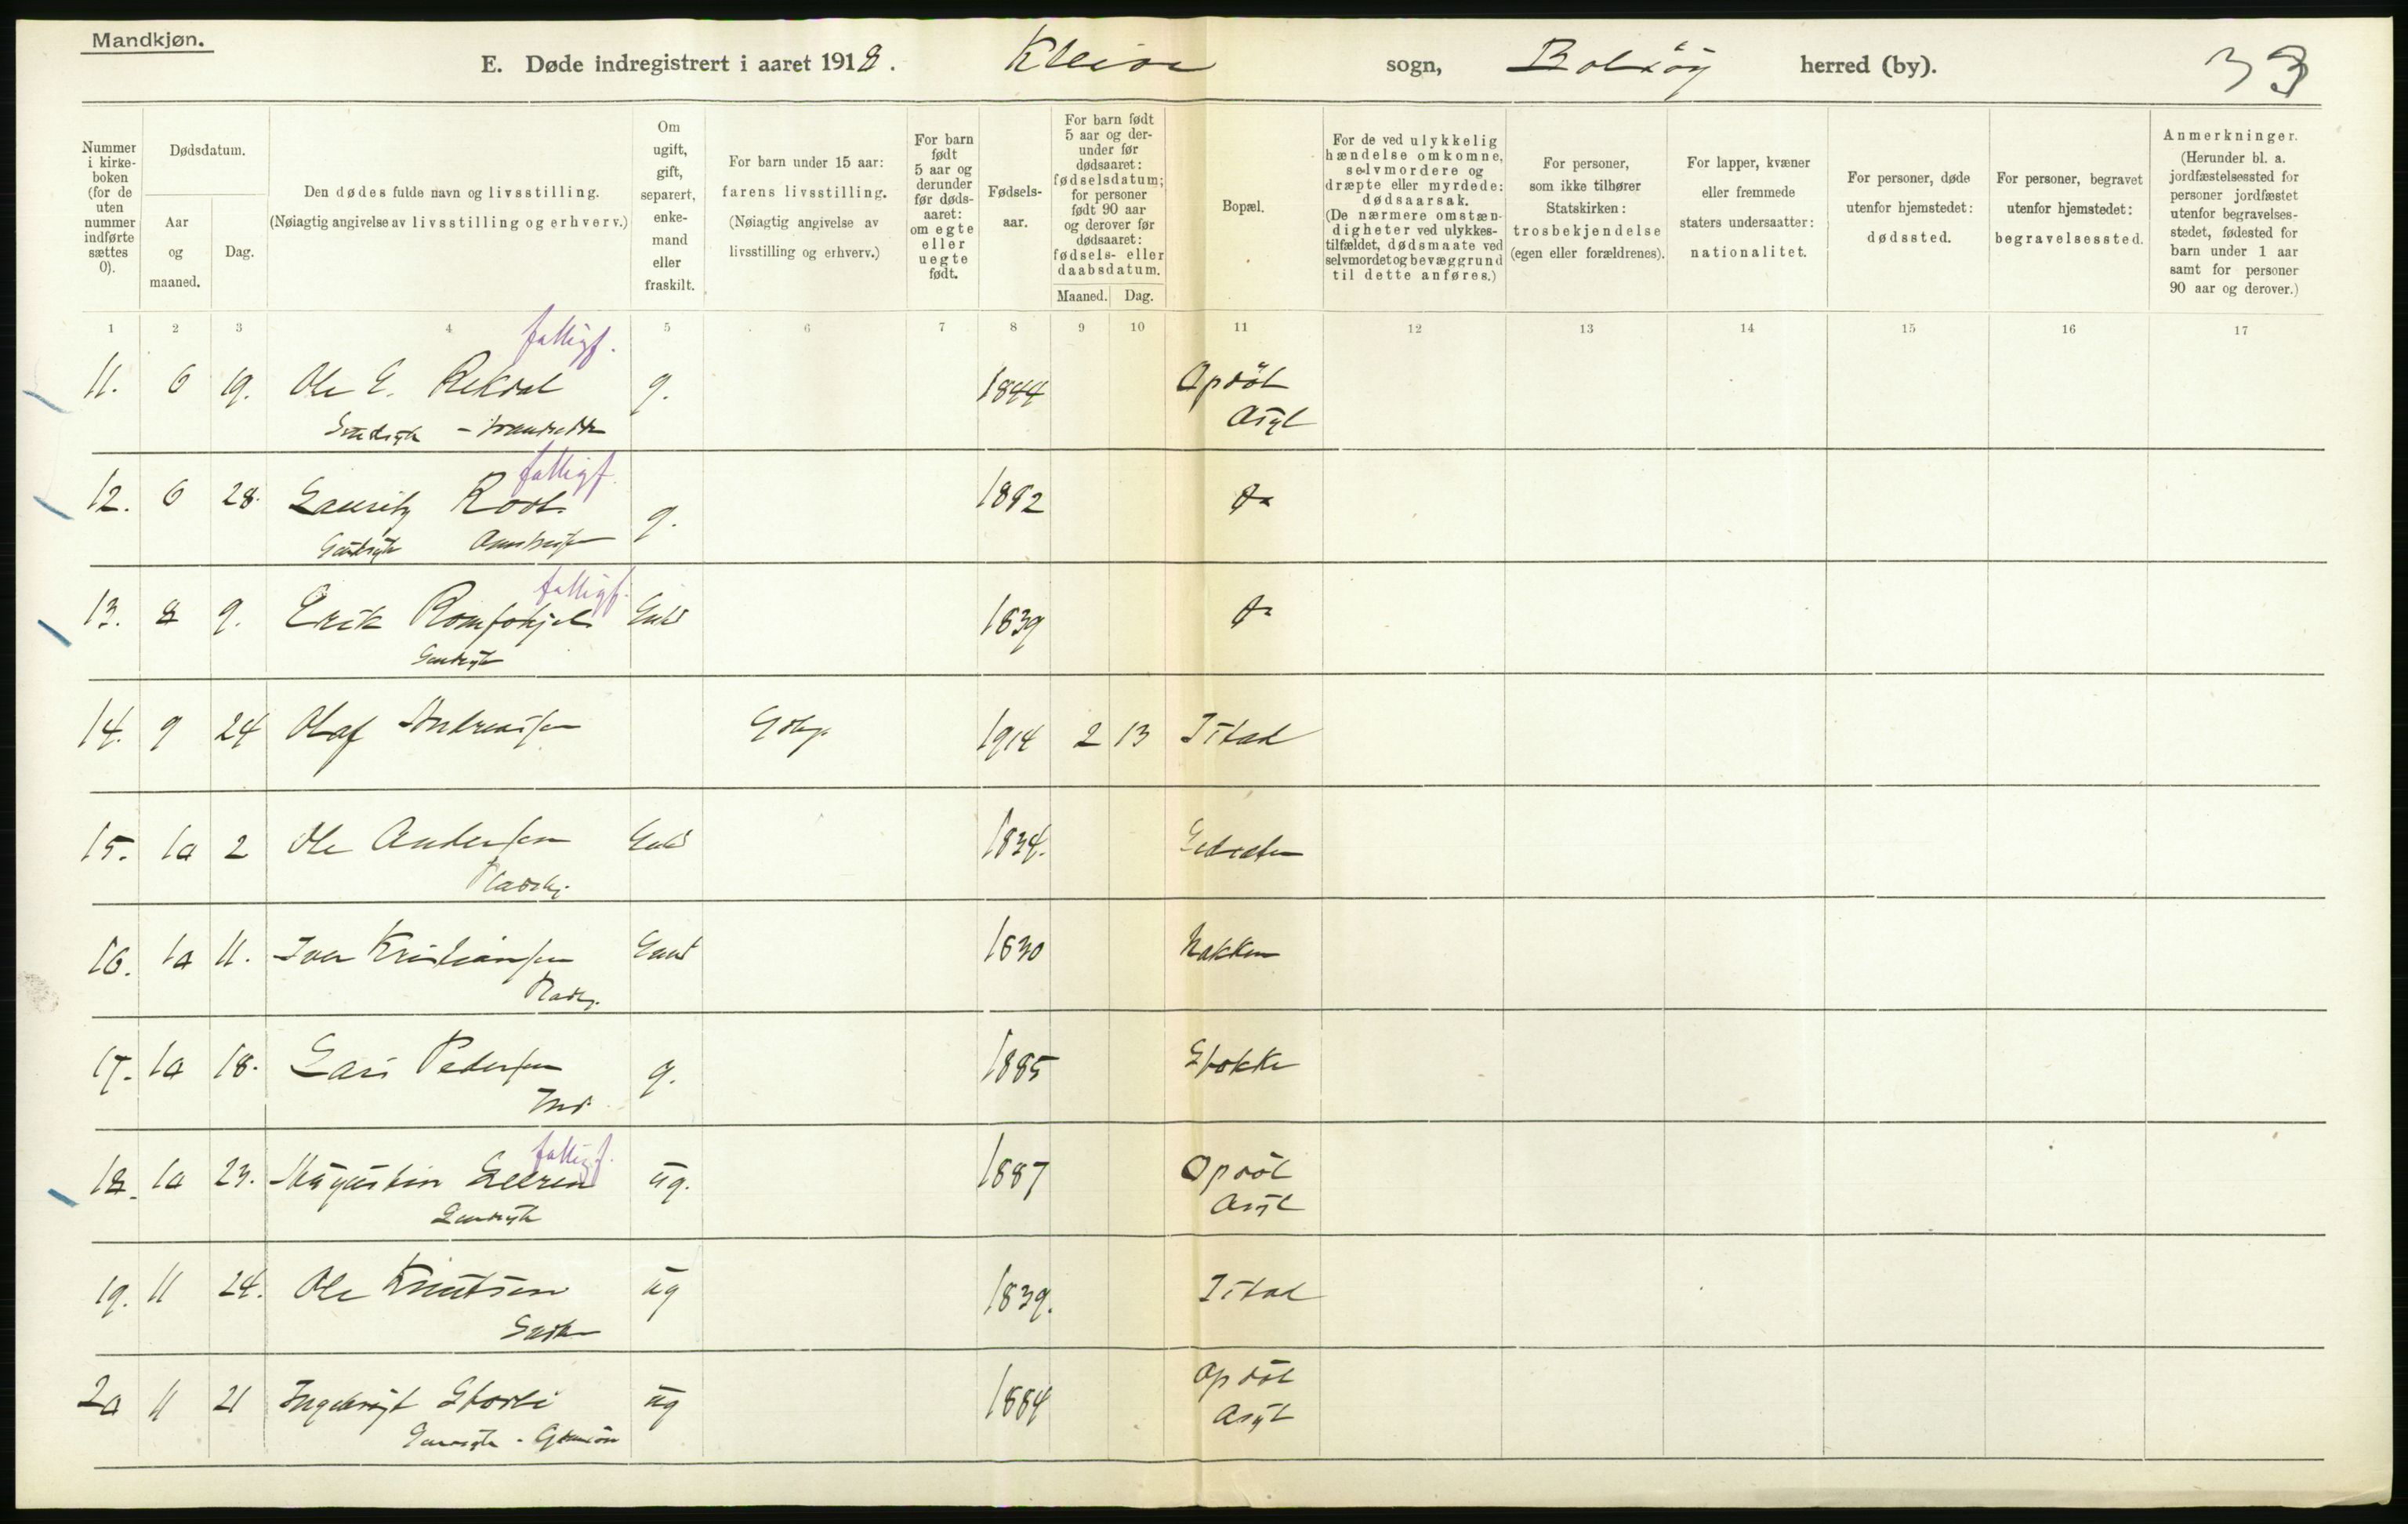 Mandkjøn.
E. Døde indregistrert i aaret 1918. Kleive sogn, Bolsöy herred (by). 33
Nummer i kirkeboken (for de uten nummer indførte sættes 0).
Dødsdatum.
Aar og maaned.
Dag.
Den dødes fulde navn og livsstilling.
(Nøiagtig angivelse av livsstilling og erhverv.)
Om ugift, gift, separert, enkemand eller fraskilt.
For barn under 15 aar: farens livsstilling.
(Nøiagtig angivelse av livsstilling og erhverv.)
For barn født 5 aar og derunder før dødsaaret: om egte eller uegte født.
Fødselsaar.
For barn født 5 aar og derunder før dødsaaret: fødselsdatum; for personer født 90 aar og derover før dødsaaret: fødsels- eller daabsdatum.
Maaned. Dag.
Bopæl.
For de ved ulykkelig hændelse omkomne, selvmordere og dræpte eller myrdede: dødsaarsak.
(De nærmere omstændigheter ved ulykkestilfældet, dødsmaate ved selvmordet og bevæggrund til dette anføres.)
For personer, som ikke tilhører Statskirken: trosbekjendelse (egen eller forældrenes).
For lapper, kvæner eller fremmede staters undersaatter: nationalitet.
For personer, døde utenfor hjemstedet: dødssted.
For personer, begravet utenfor hjemstedet: begravelsessted.
Anmerkninger.
(Herunder bl. a. jordfæstelsessted for personer jordfæstet utenfor begravelsesstedet, fødested for barn under 1 aar samt for personer 90 aar og derover.)
1 2 3 4 5 6 7 8 9 10 11 12 13 14 15 16 17
fattigf.
11. 6 19. Ole E. Rekdal g. 1844 Opdöl
Sindsyk Asyl
fattigf.
12. 6 28. Lauritz g. 1892
Sindsyk
fattigf.
13. 8 9. Erik Enkd 1839
Sindsyk
14. 9 24 Olaf Andreassen Gbr. 1914 2 13 Istad
15. 10 2 Ole Andersen Enkd 1834.
Pladsm.
16. 10 11. Iver Kristiansen Enkd 1830 Nakken
Pladsm.
17. 10 18. Lars Pedersen g. 1885 Stokke
Ind.
fattigf.
18. 10 23. Augustin ug. 1887 Opdöl
Sindsyk Asyl
19. 11 24. Ole Knutsen ug 1839. Istad
20 11 21 Ingebrigt Storli ug 1884 Opdöl
Sindsyk Asyl